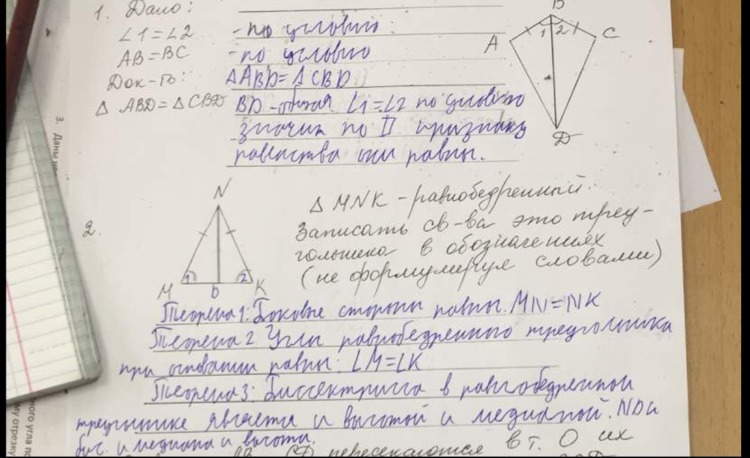 1. Дано:
∠1=∠2 -по условию
AB=BC -по условию
Док-ть: △ABD=△CBD
△ ABD=△CBD BD-общая ∠1=∠2 по условию
значит по II признаку
равенства они равны.
A B C D 1 2
2.
△ MNK - равнобедренный.
Записать св-ва это треу-
гольника в обозначениях
(не формулируя словами)
N M D K 1 2
Теорема 1: Боковые стороны равны. MN=NK
Теорема 2 Углы равнобедренного треугольника
при основании равны: ∠M=∠K
Теорема 3: Биссектриса в равнобедренном
треугольнике является и высотой и медианой. ND и
бис. и медиана и высота.
CD пересекаются в т. O их
3. Даны
ного угла
му отрезку